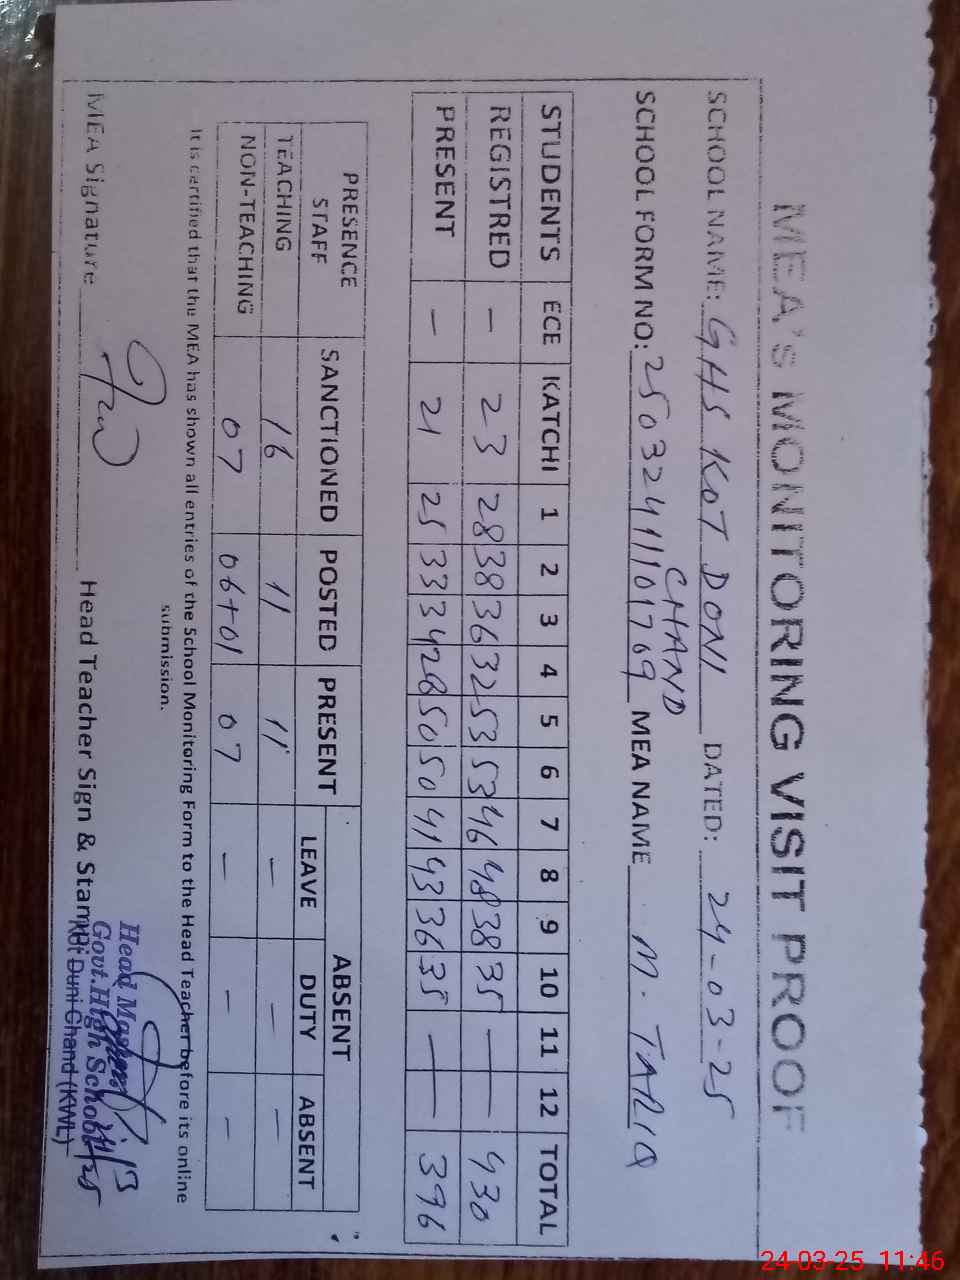 MEA's MONITORING VISIT PROOF
SCHOOL NAME: GHS KOT DONI CHAND DATED: 24-03-25
SCHOOL FORM NO: 25032411101769 MEA NAME M. TARIQ
STUDENTS ECE KATCHI 1 2 3 4 5 6 7 8 9 10 11 12 TOTAL
REGISTRED — 23 28 38 36 32 53 53 46 48 38 35 — — 430
PRESENT — 21 25 33 34 28 50 50 41 43 36 35 — — 396
PRESENCE STAFF SANCTIONED POSTED PRESENT ABSENT
LEAVE DUTY ABSENT
TEACHING 16 11 11 — — —
NON-TEACHING 07 06+01 07 — — —
It is certified that the MEA has shown all entries of the School Monitoring Form to the Head Teacher before its online
submission.
MEA Signature Head Teacher Sign & Stamp:
Head Master
Govt. High School
Kot Duni Chand (KWL)
24-03-25 11:46